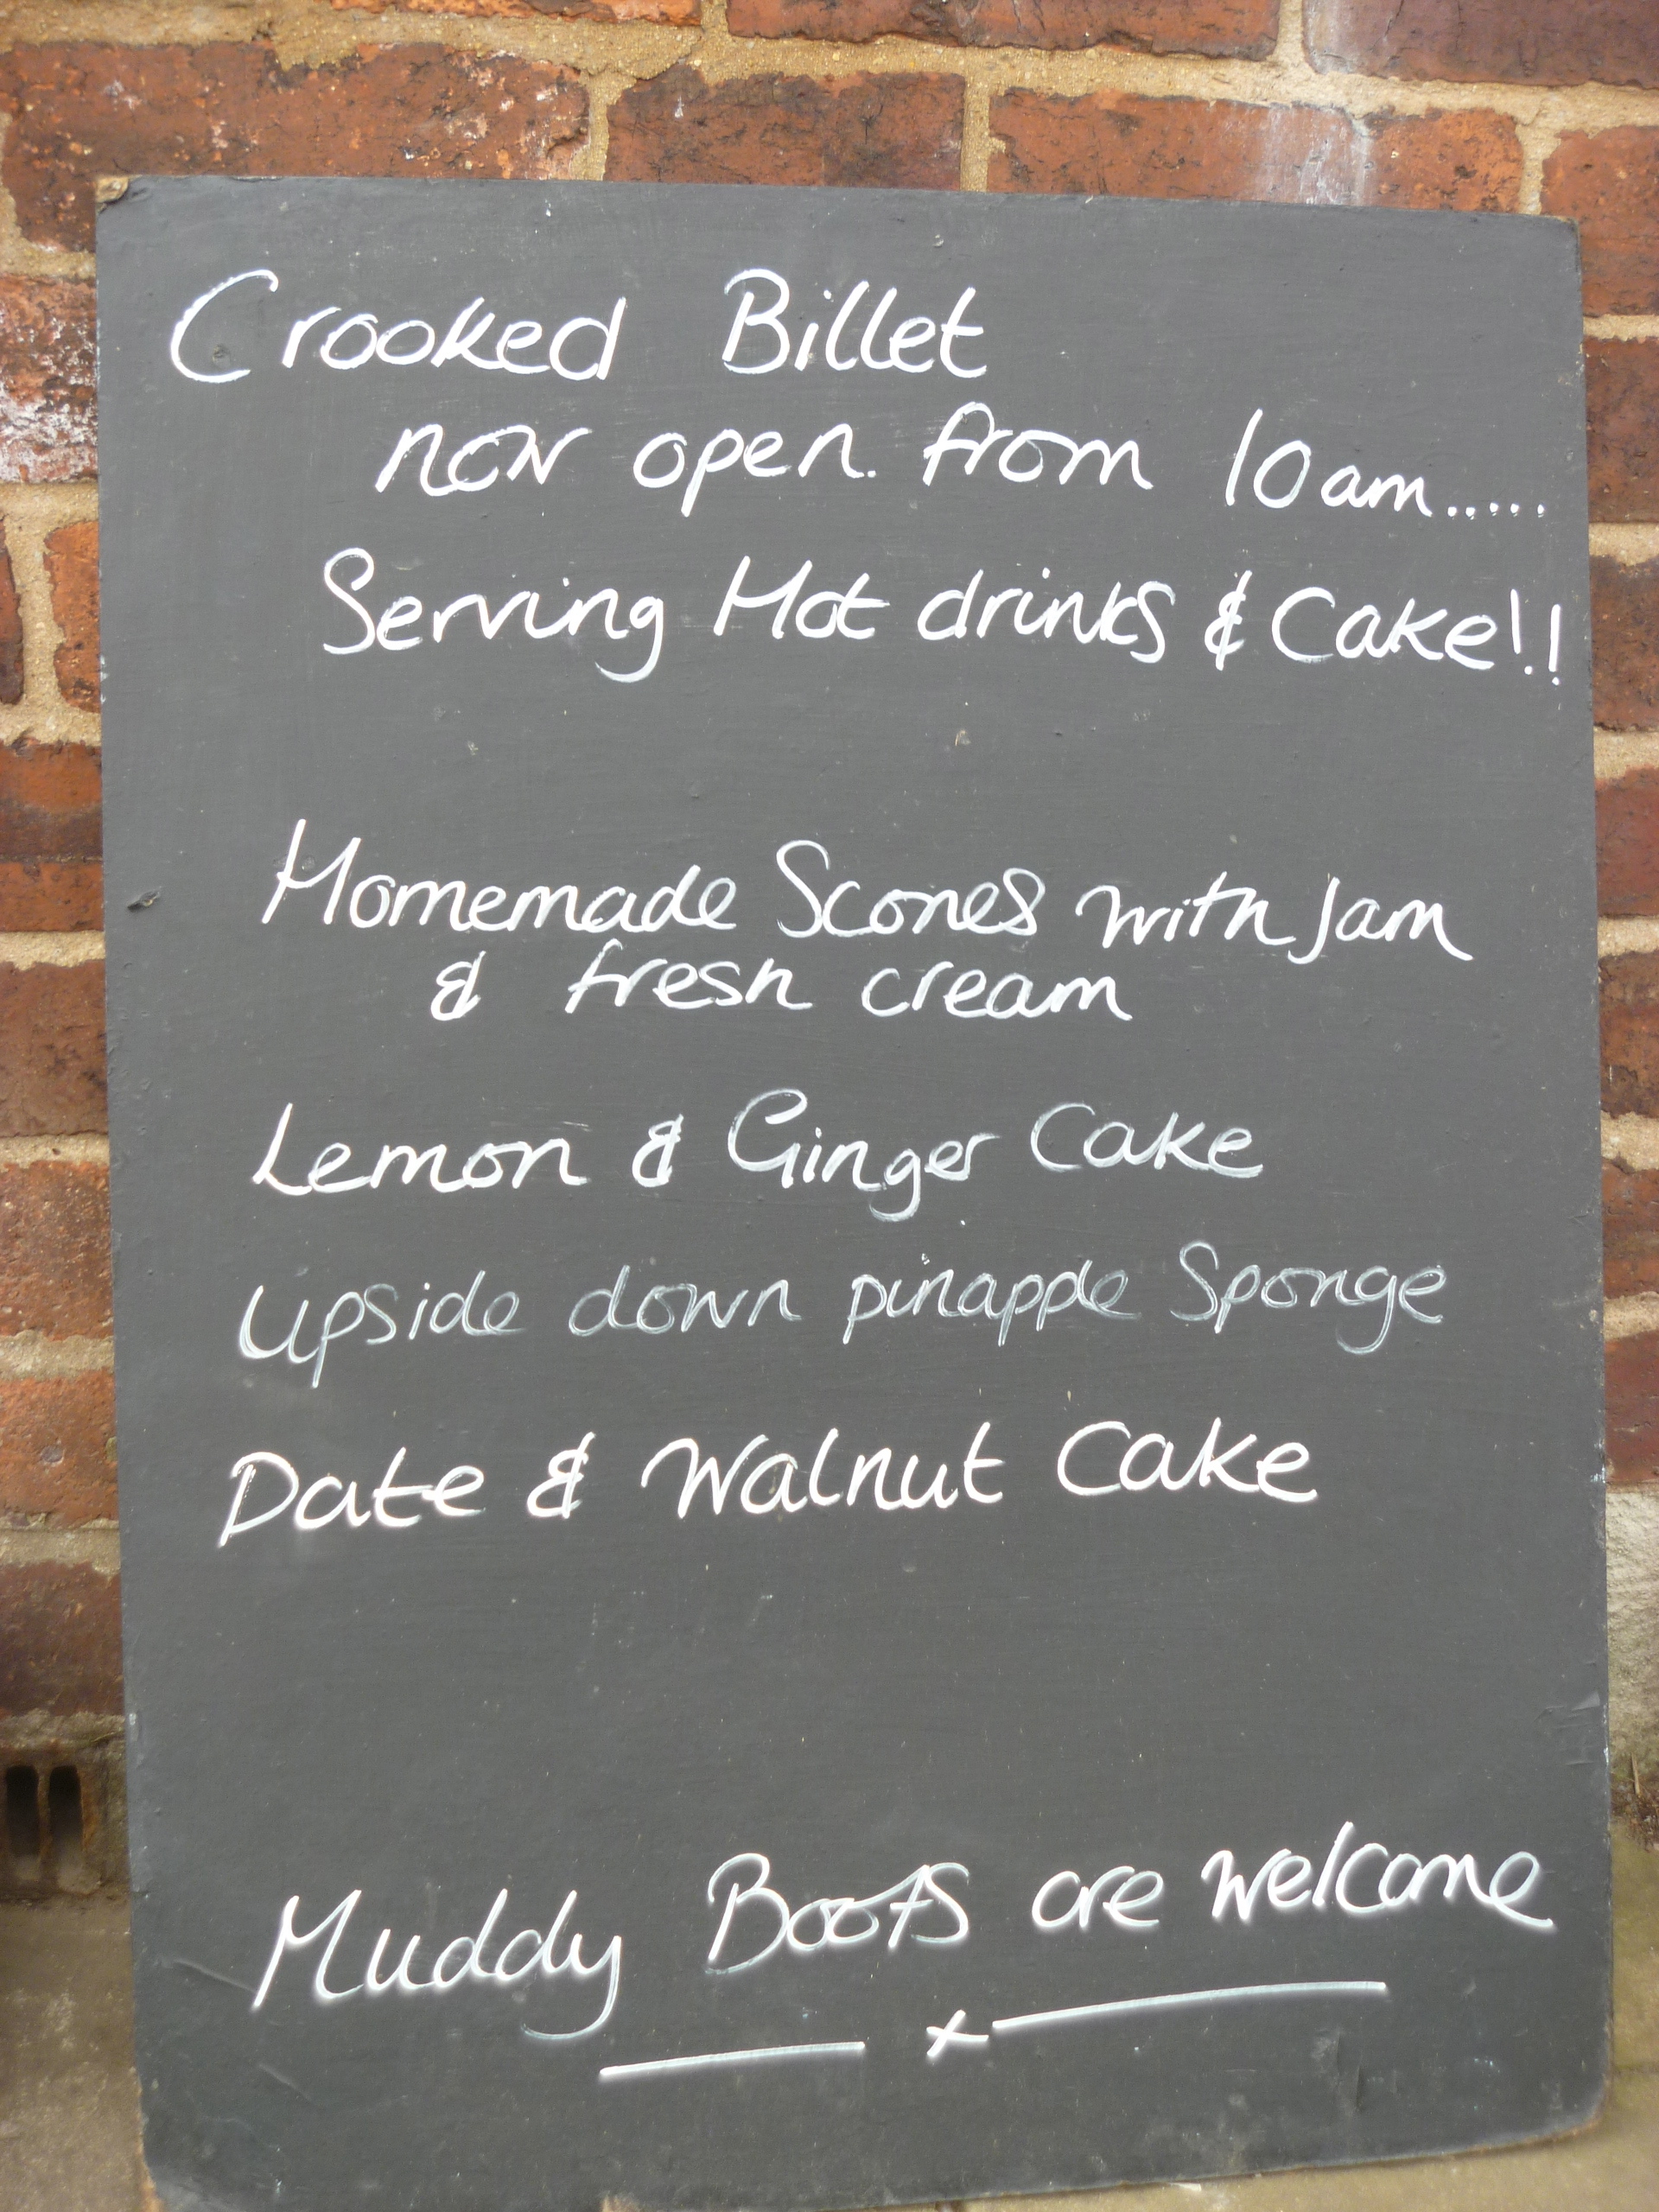 Crooked Billet
now open. from 10am.....
Serving Hot drinks & Cake!!
Homemade Scones with Jam
& fresh cream
Lemon & Ginger Cake
Upside down pinapple Sponge
Date & Walnut Cake
Muddy Boots are welcome
x